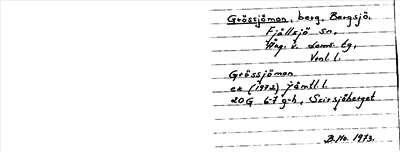 Grössjömon, berg, Bergsjö.
Fjällsjö sn,
Väg. v. Loms tg,
Vnl l.
Grössjömon
ek (1972) Jämtl. l.
20G 6-7 g-h, Skirsjöberget
B.No. 1973.